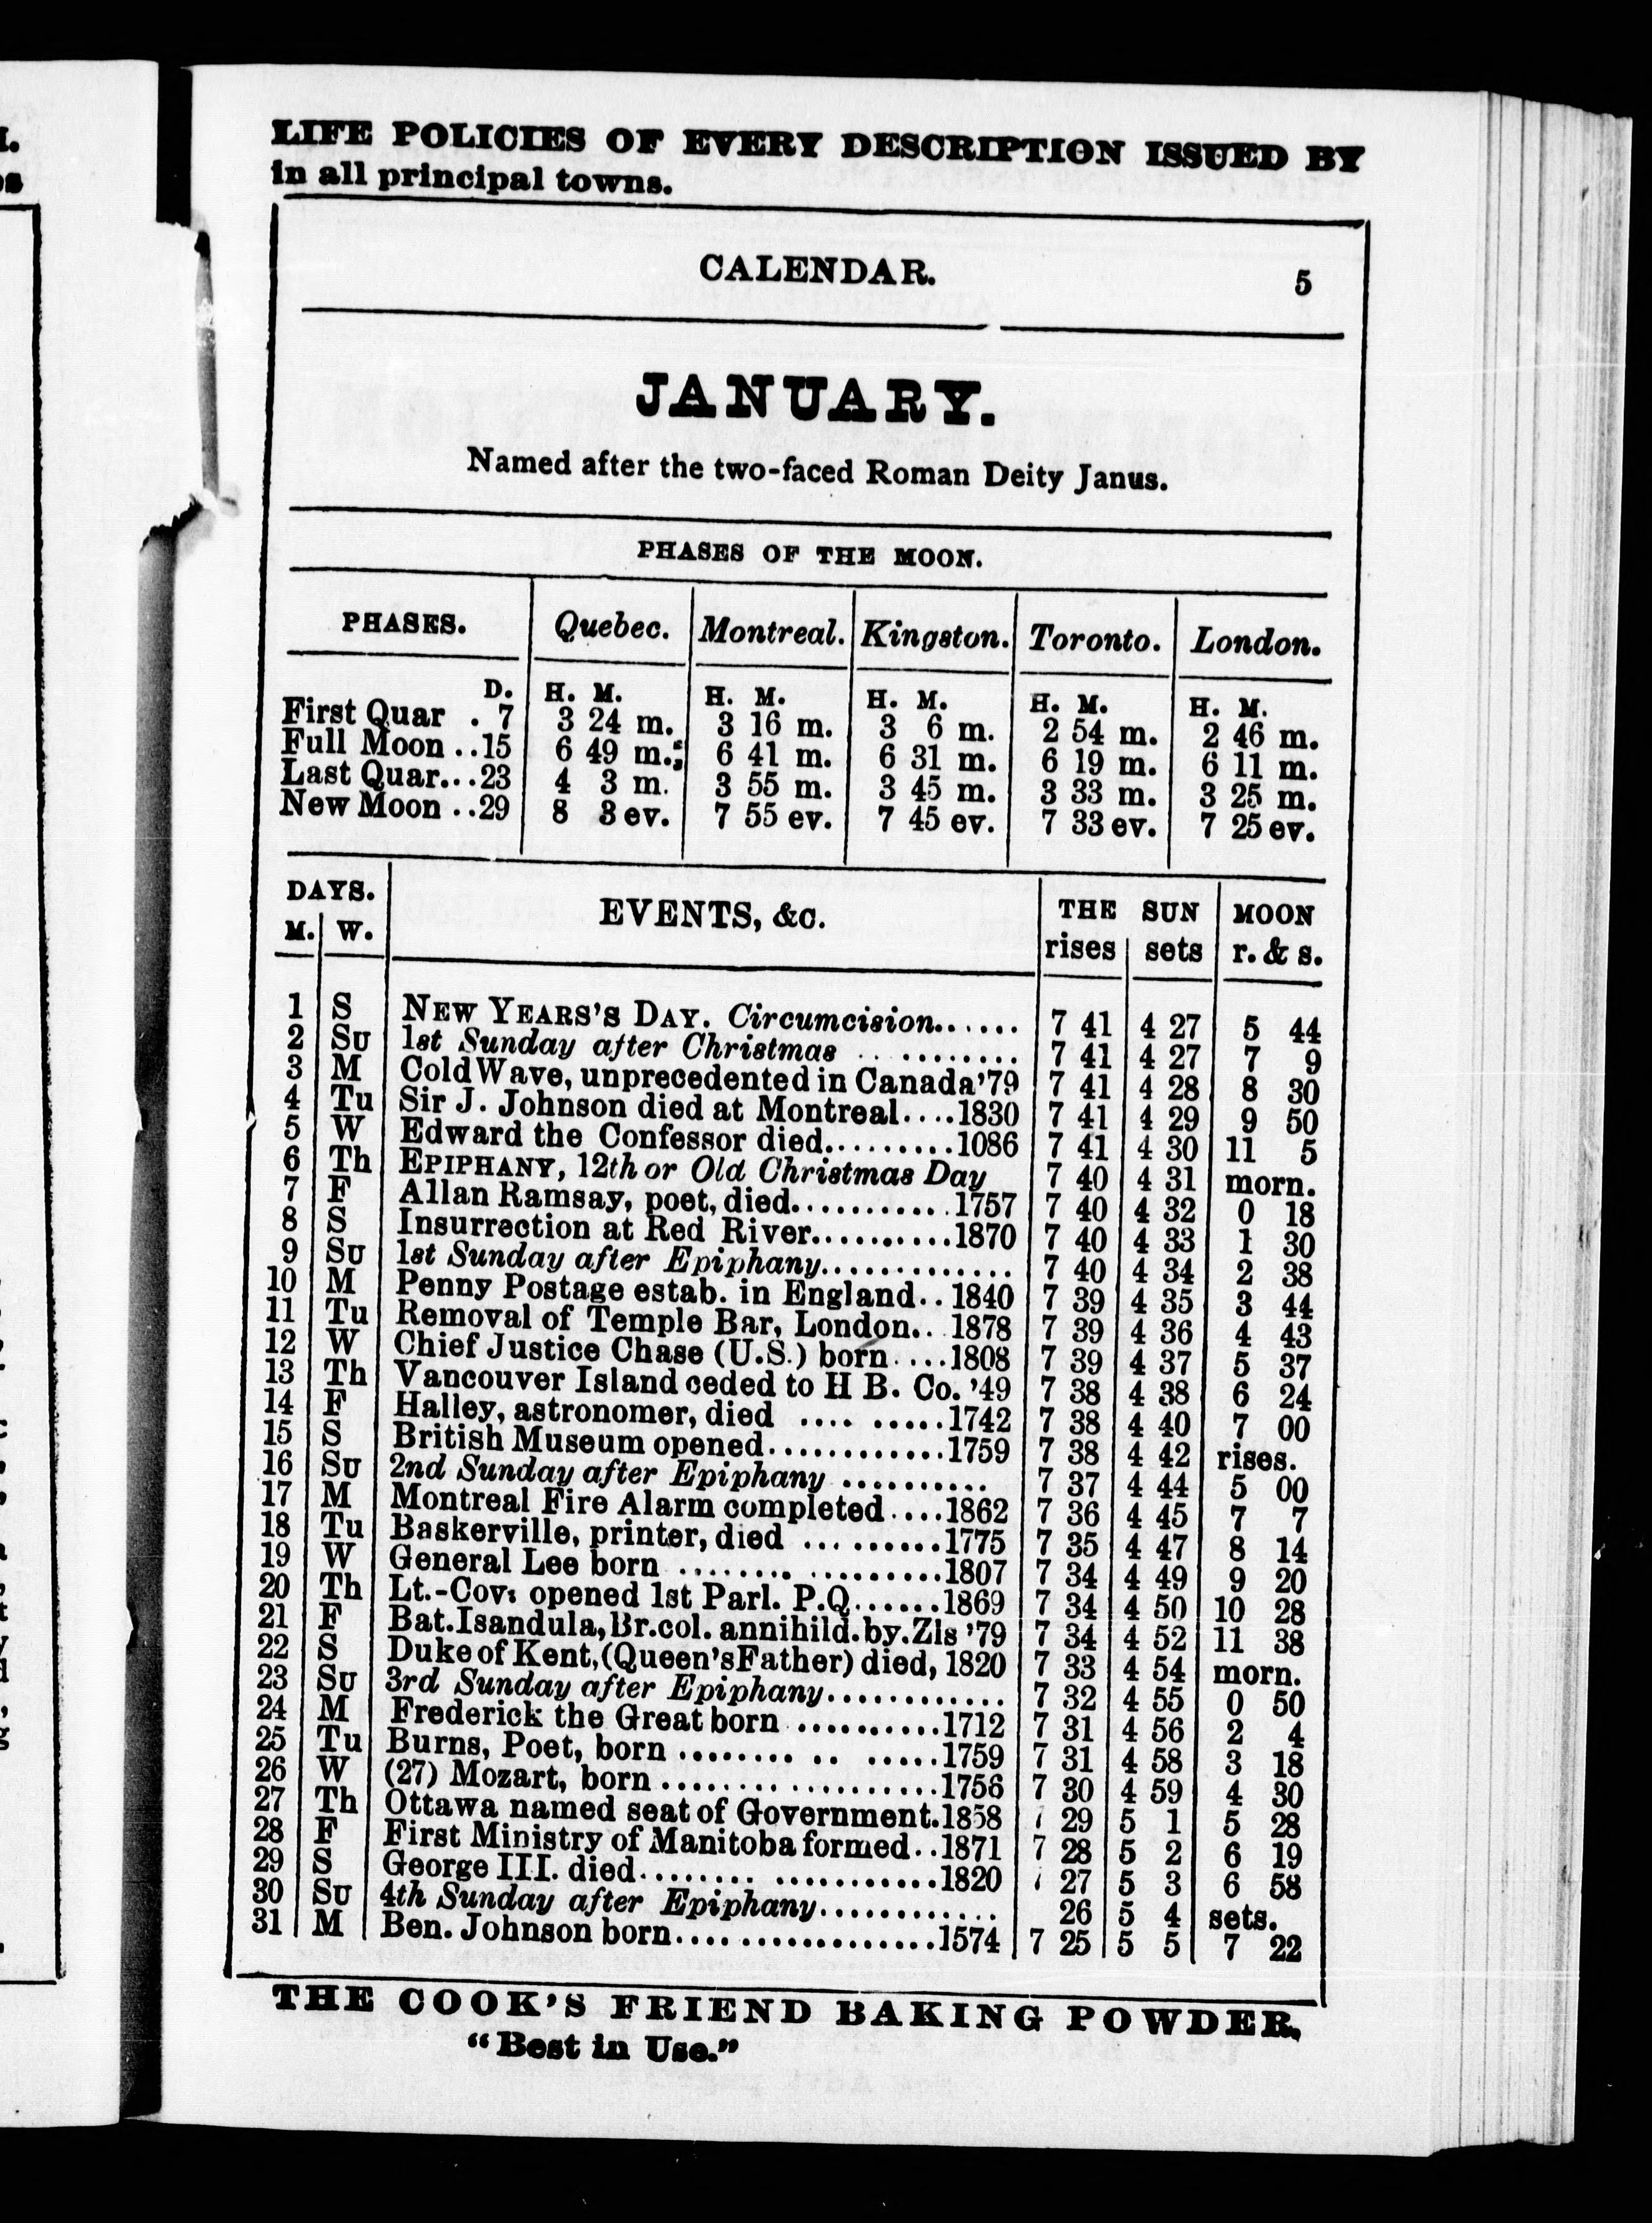 LIFE POLICIES OF EVERY DESCRIPTION ISSUED BY
in all principal towns.
CALENDAR. 5
JANUARY.
Named after the two-faced Roman Deity Janus.
PHASES OF THE MOON.
PHASES. Quebec. Montreal. Kingston. Toronto. London.
D. H. M. H. M. H. M. H. M. H. M.
First Quar . 7 3 24 m. 3 16 m. 3 6 m. 2 54 m. 2 46 m.
Full Moon ..15 6 49 m. 6 41 m. 6 31 m. 6 19 m. 6 11 m.
Last Quar...23 4 3 m. 3 55 m. 3 45 m. 3 33 m. 3 25 m.
New Moon ..29 8 3 ev. 7 55 ev. 7 45 ev. 7 33 ev. 7 25 ev.
DAYS. EVENTS, &c. THE SUN MOON
M. W. rises sets r. & s.
1 S NEW YEARS'S DAY. Circumcision...... 7 41 4 27 5 44
2 SU 1st Sunday after Christmas .. ......... 7 41 4 27 7 9
3 M Cold Wave, unprecedented in Canada '79 7 41 4 28 8 30
4 Tu Sir J. Johnson died at Montreal....1830 7 41 4 29 9 50
5 W Edward the Confessor died..........1086 7 41 4 30 11 5
6 Th EPIPHANY, 12th or Old Christmas Day 7 40 4 31 morn.
7 F Allan Ramsay, poet, died............1757 7 40 4 32 0 18
8 S Insurrection at Red River..........1870 7 40 4 33 1 30
9 SU 1st Sunday after Epiphany.............. 7 40 4 34 2 38
10 M Penny Postage estab. in England..1840 7 39 4 35 3 44
11 Tu Removal of Temple Bar, London...1878 7 39 4 36 4 43
12 W Chief Justice Chase (U.S.) born....1808 7 39 4 37 5 37
13 Th Vancouver Island ceded to H B. Co. '49 7 38 4 38 6 24
14 F Halley, astronomer, died .... .....1742 7 38 4 40 7 00
15 S British Museum opened.............1759 7 38 4 42 rises.
16 SU 2nd Sunday after Epiphany .......... 7 37 4 44 5 00
17 M Montreal Fire Alarm completed....1862 7 36 4 45 7 7
18 Tu Baskerville, printer, died ..........1775 7 35 4 47 8 14
19 W General Lee born ........ .........1807 7 34 4 49 9 20
20 Th Lt.-Cov: opened 1st Parl. P.Q......1869 7 34 4 50 10 28
21 F Bat. Isandula, Br. col. annihild. by. Zls '79 7 34 4 52 11 38
22 S Duke of Kent, (Queen's Father) died, 1820 7 33 4 54 morn.
23 SU 3rd Sunday after Epiphany............. 7 32 4 55 0 50
24 M Frederick the Great born ..........1712 7 31 4 56 2 4
25 Tu Burns, Poet, born ........ .. .....1759 7 31 4 58 3 18
26 W (27) Mozart, born ....................1756 7 30 4 59 4 30
27 Th Ottawa named seat of Government.1858 7 29 5 1 5 28
28 F First Ministry of Manitoba formed..1871 7 28 5 2 6 19
29 S George III. died........ ............1820 7 27 5 3 6 58
30 SU 4th Sunday after Epiphany............. 26 5 4 sets.
31 M Ben. Johnson born.... ..............1574 7 25 5 5 7 22
THE COOK'S FRIEND BAKING POWDER,
"Best in Use."